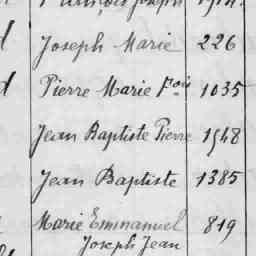 Joseph Marie 226
Pierre Marie Fois 1035
Jean Baptiste Pierre 1548
Jean Baptiste 1385
Marie Emmanuel 819
Joseph Jean